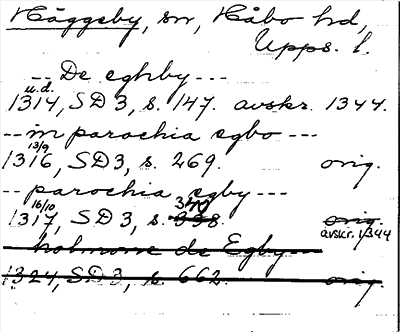 Häggeby, sn, Håbo hd,
Upps. l.
-- De eghby ---
u.d.
1314, SD3, s. 147. avskr. 1344.
-- in parochia egbo ---
13/9
1316, SD3, s. 269. orig.
-- parochia egby ---
16/10 340
1317, SD3, s. 338. orig.
avskr. 1344
holmone de Egby --
1324, SD3, s. 662. orig.